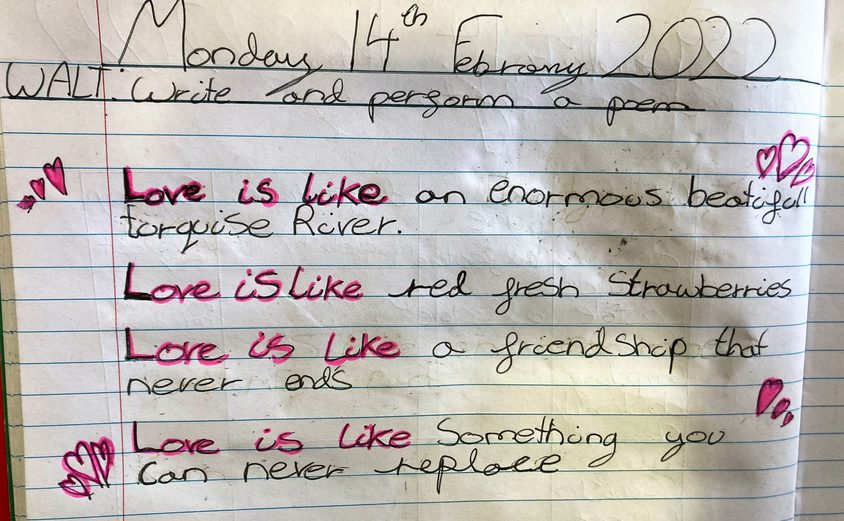 Monday 14th Febrany 2022
WALT: Write and perform a poem
Love is like an enormous beatifull
torquise River.
Love is like red fresh Strawberries
Love is like a friendship that
never ends
Love is like Something you
can never replace